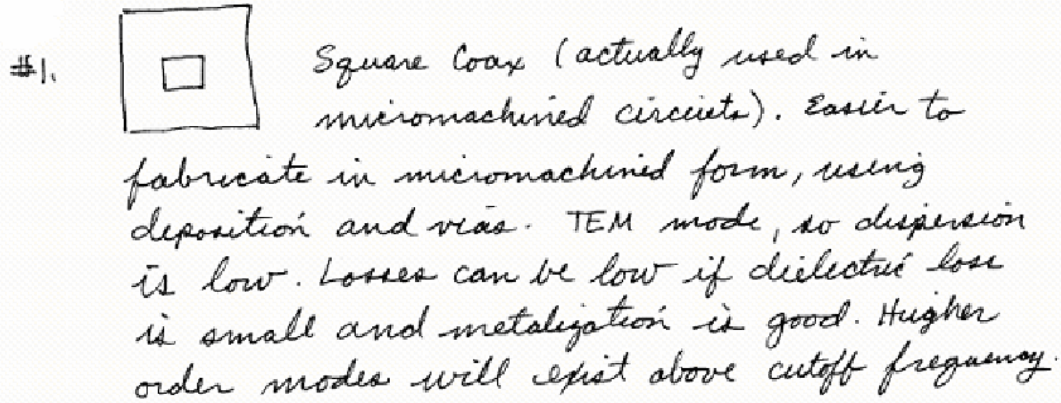 #1. Square Coax (actually used in
micromachined circuits). Easier to
fabricate in micromachined form, using
deposition and vias. TEM mode, so dispersion
is low. Losses can be low if dielectric loss
is small and metalization is good. Higher
order modes will exist above cutoff frequency.